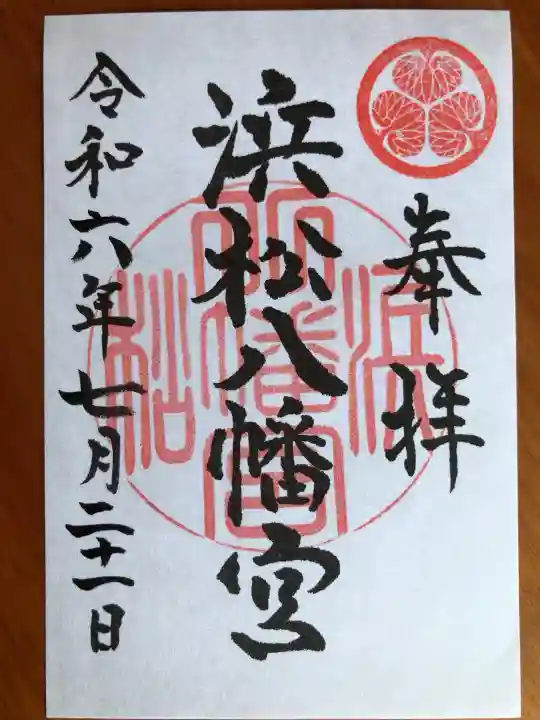 奉拝
浜松八幡宮
令和六年七月二十一日
浜松八幡宮